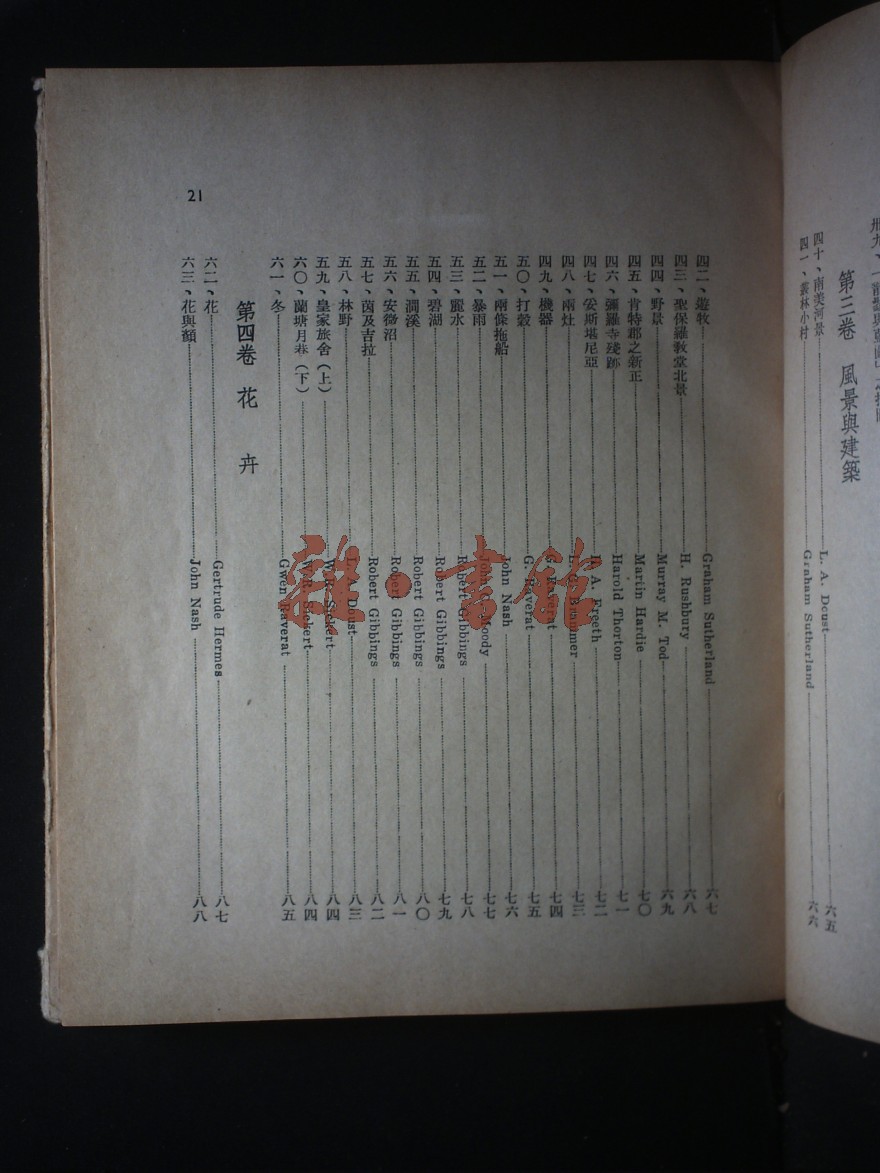 第三卷 風景與建築
四十、南美河景 L. A. Doust 六五
四一、雲林小村 Graham Sutherland 六六
四二、遊牧 Graham Sutherland 六七
四三、聖保羅教堂北景 H. Rushbury 六八
四四、野景 Murray M. Tod 六九
四五、肯特郡之新正 Martin Hardie 七〇
四六、彌羅寺殘跡 Harold Thorton 七一
四七、安斯堪尼亞 A. Freeth 七二
四八、兩灶 七三
四九、機器 G. Raverat 七四
五〇、打穀 G. Raverat 七五
五一、兩條拖船 John Nash 七六
五二、暴雨 John Moody 七七
五三、麗水 Robert Gibbings 七八
五四、碧湖 Robert Gibbings 七九
五五、澗溪 Robert Gibbings 八〇
五六、安微沼 Robert Gibbings 八一
五七、茵及吉拉 Robert Gibbings 八二
五八、林野 L. A. Doust 八三
五九、皇家旅舍(上) W. R. Sickert 八四
六〇、蘭塘月巷(下) W. R. Sickert 八四
六一、冬 Gwen Raverat 八五
第四卷 花卉
六二、花 Gertrude Hermes 八七
六三、花與顏 John Nash 八八
21